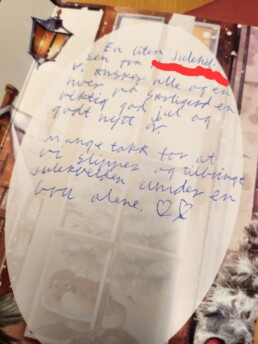 En liten julehil-
sen fra
vi ønsker alle og en
hver på særligest en
riktig god jul og
godt nytt år.
Mange takk for at
vi slipper og tilbringe
julekvelden under en
bru alene. ♡♡